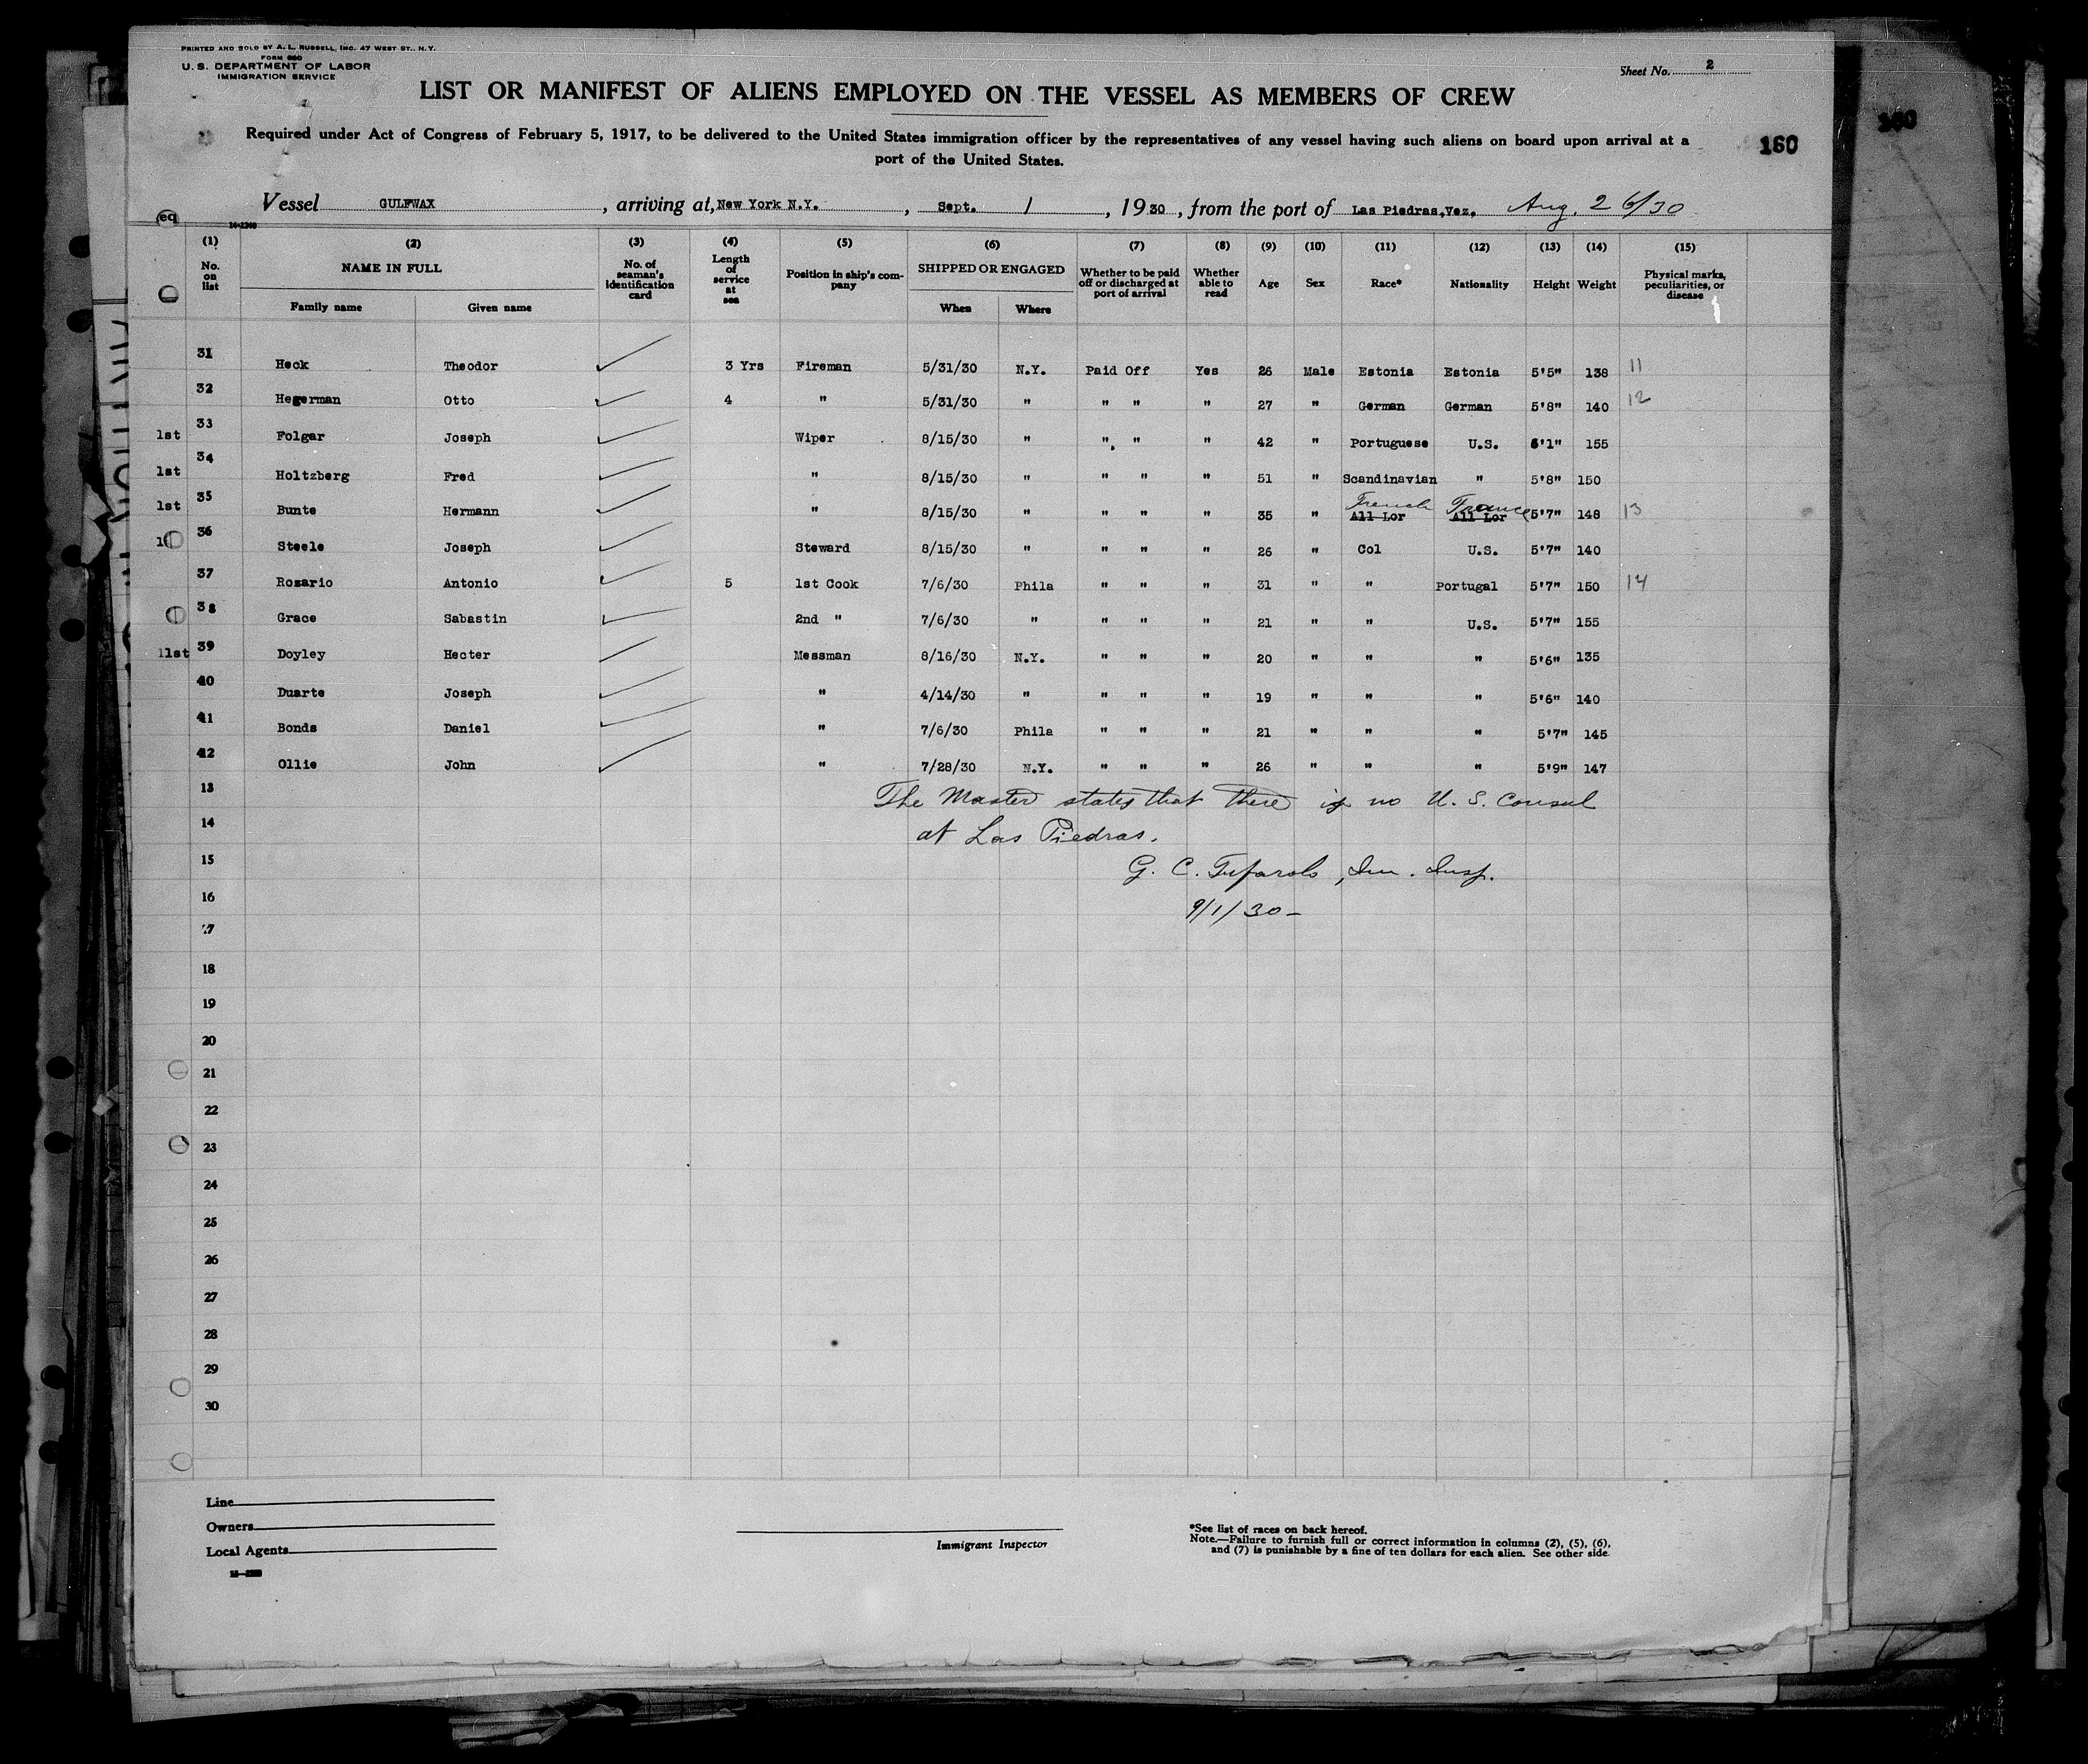 PRINTED AND SOLD BY A. L. RUSSELL, INC. 47 WEST ST., N.Y.
FORM 680
U. S. DEPARTMENT OF LABOR
IMMIGRATION SERVICE
Sheet No. 2
LIST OR MANIFEST OF ALIENS EMPLOYED ON THE VESSEL AS MEMBERS OF CREW
Required under Act of Congress of February 5, 1917, to be delivered to the United States immigration officer by the representatives of any vessel having such aliens on board upon arrival at a
port of the United States.
160
160
eq
Vessel GULFWAX, arriving at, New York N.Y., Sept. 1, 1930, from the port of Las Piedras, Vez. Aug. 26/30
14-1240
(1) (2) (3) (4) (5) (6) (7) (8) (9) (10) (11) (12) (13) (14) (15)
No. on list
NAME IN FULL
Family name Given name
No. of seaman's identification card
Length of service at sea
Position in ship's company
SHIPPED OR ENGAGED
When Where
Whether to be paid off or discharged at port of arrival
Whether able to read
Age Sex Race* Nationality Height Weight
Physical marks, peculiarities, or disease
31 Heck Theodor 3 Yrs Fireman 5/31/30 N.Y. Paid Off Yes 26 Male Estonia Estonia 5'5" 138 11
32 Hegerman Otto 4 " 5/31/30 " " " " 27 " German German 5'8" 140 12
1st 33 Folgar Joseph Wiper 8/15/30 " " " " 42 " Portuguese U.S. 6'1" 155
1st 34 Holtzberg Fred " 8/15/30 " " " " 51 " Scandinavian " 5'8" 150
1st 35 Bunte Hermann " 8/15/30 " " " " 35 " French All Lor France All Lor 5'7" 148 13
36 Steele Joseph Steward 8/15/30 " " " " 26 " Col U.S. 5'7" 140
37 Rozario Antonio 5 1st Cook 7/6/30 Phila " " " 31 " " Portugal 5'7" 150 14
38 Grace Sabastin 2nd " 7/6/30 " " " " 21 " " U.S. 5'7" 155
11st 39 Doyley Hecter Messman 8/16/30 N.Y. " " " 20 " " " 5'6" 135
40 Duarte Joseph " 4/14/30 " " " " 19 " " " 5'6" 140
41 Bonds Daniel " 7/6/30 Phila " " " 21 " " " 5'7" 145
42 Ollie John " 7/28/30 N.Y. " " " 26 " " " 5'9" 147
13 The Master states that there is no U. S. Consul
14 at Las Piedras.
15 G. C. , Im. Insp.
16 9/1/30-
17
18
19
20
21
22
23
24
25
26
27
28
29
30
Line
Owners
Local Agents
Immigrant Inspector
*See list of races on back hereof.
Note.—Failure to furnish full or correct information in columns (2), (5), (6),
and (7) is punishable by a fine of ten dollars for each alien. See other side.